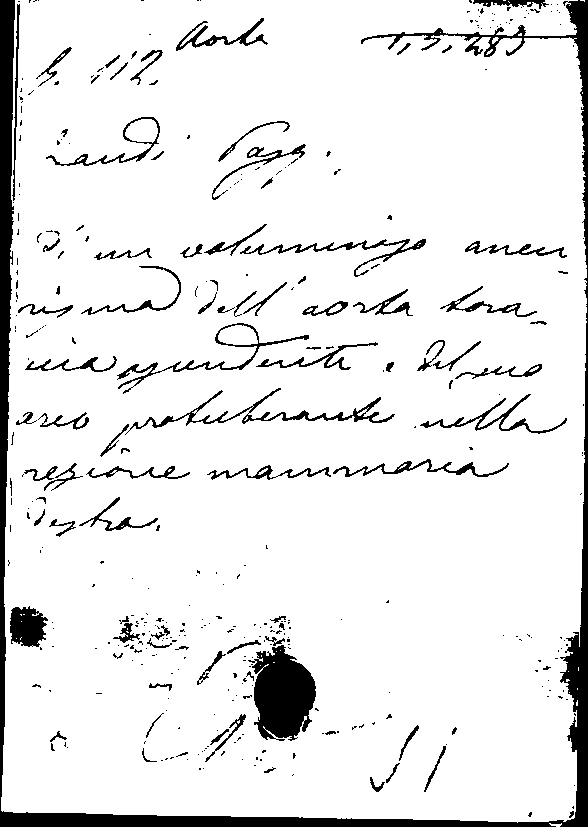 Aorta 1, 5, 283
G. 112.
Landi Pasq.
Di un voluminoso aneu-
risma dell' aorta tora-
cica ascendente e del suo
arco protuberante nella
regione mammaria
destra.